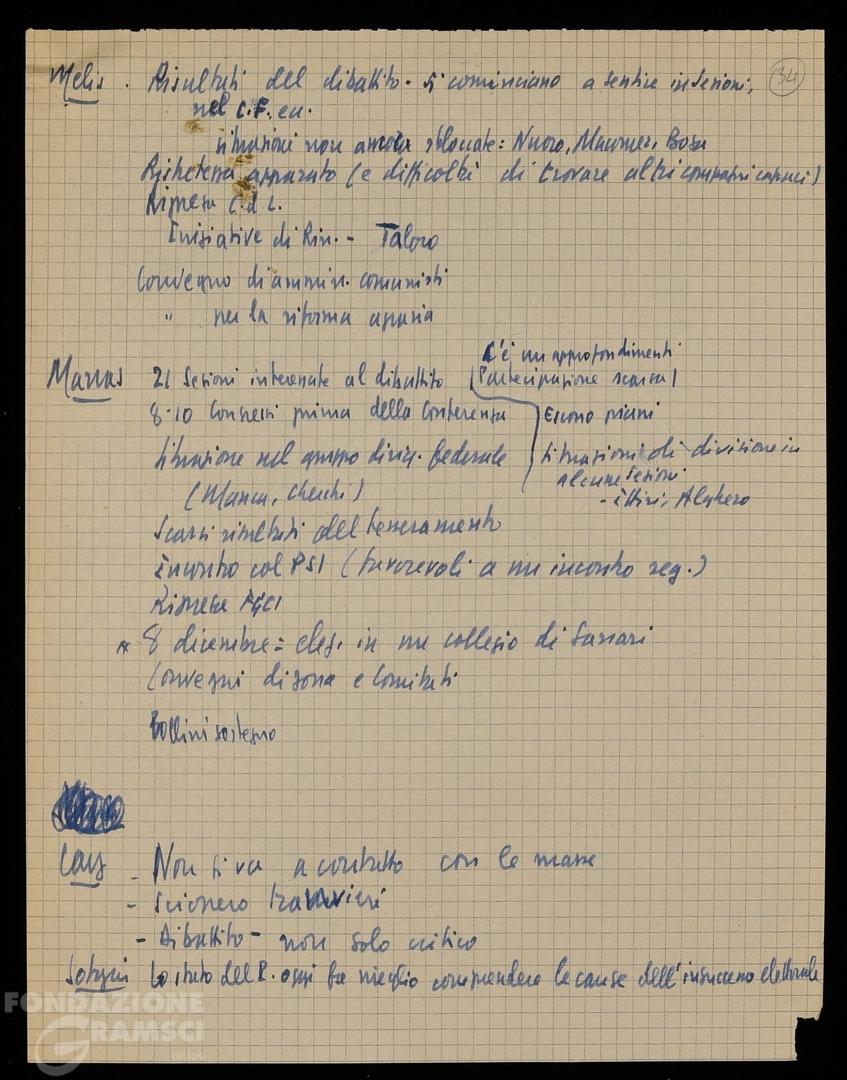 34
Melis . Risultati del dibattito. Si cominciano a sentire in sezioni,
nel C.F. ecc.
situazioni non ancora sbloccate: Nuoro, Macomer, Bosa
Ristretezza apparato (e difficoltà di trovare altri compagni capaci)
Ripresa C.d.L.
Iniziative di Rin. - Taloro
Convegno di ammin. comunisti
" per la riforma agraria
Marras 21 Sezioni interessate al dibattito (C'è un approfondimento
Partecipazione scarsa)
8-10 Congressi prima della Conferenza
Escono piani
Situazione nel gruppo dirig. federale
(Manca, Cherchi)
Situazioni di divisione in
alcune Sezioni
- Ittiri, Alghero
Scarsi risultati del tesseramento
Incontro col PSI (favorevoli a un incontro reg.)
Ripresa FGCI
8 dicembre = elez. in un collegio di Sassari
Convegni di zona e Comitati
Bollini sostegno
- Non si va a contatto con le masse
- Sciopero tranvieri
- Dibattito - non solo critico
Lo stato del P. oggi fa meglio comprendere le cause dell'insuccesso elettorale
FONDAZIONE
GRAMSCI
onlus